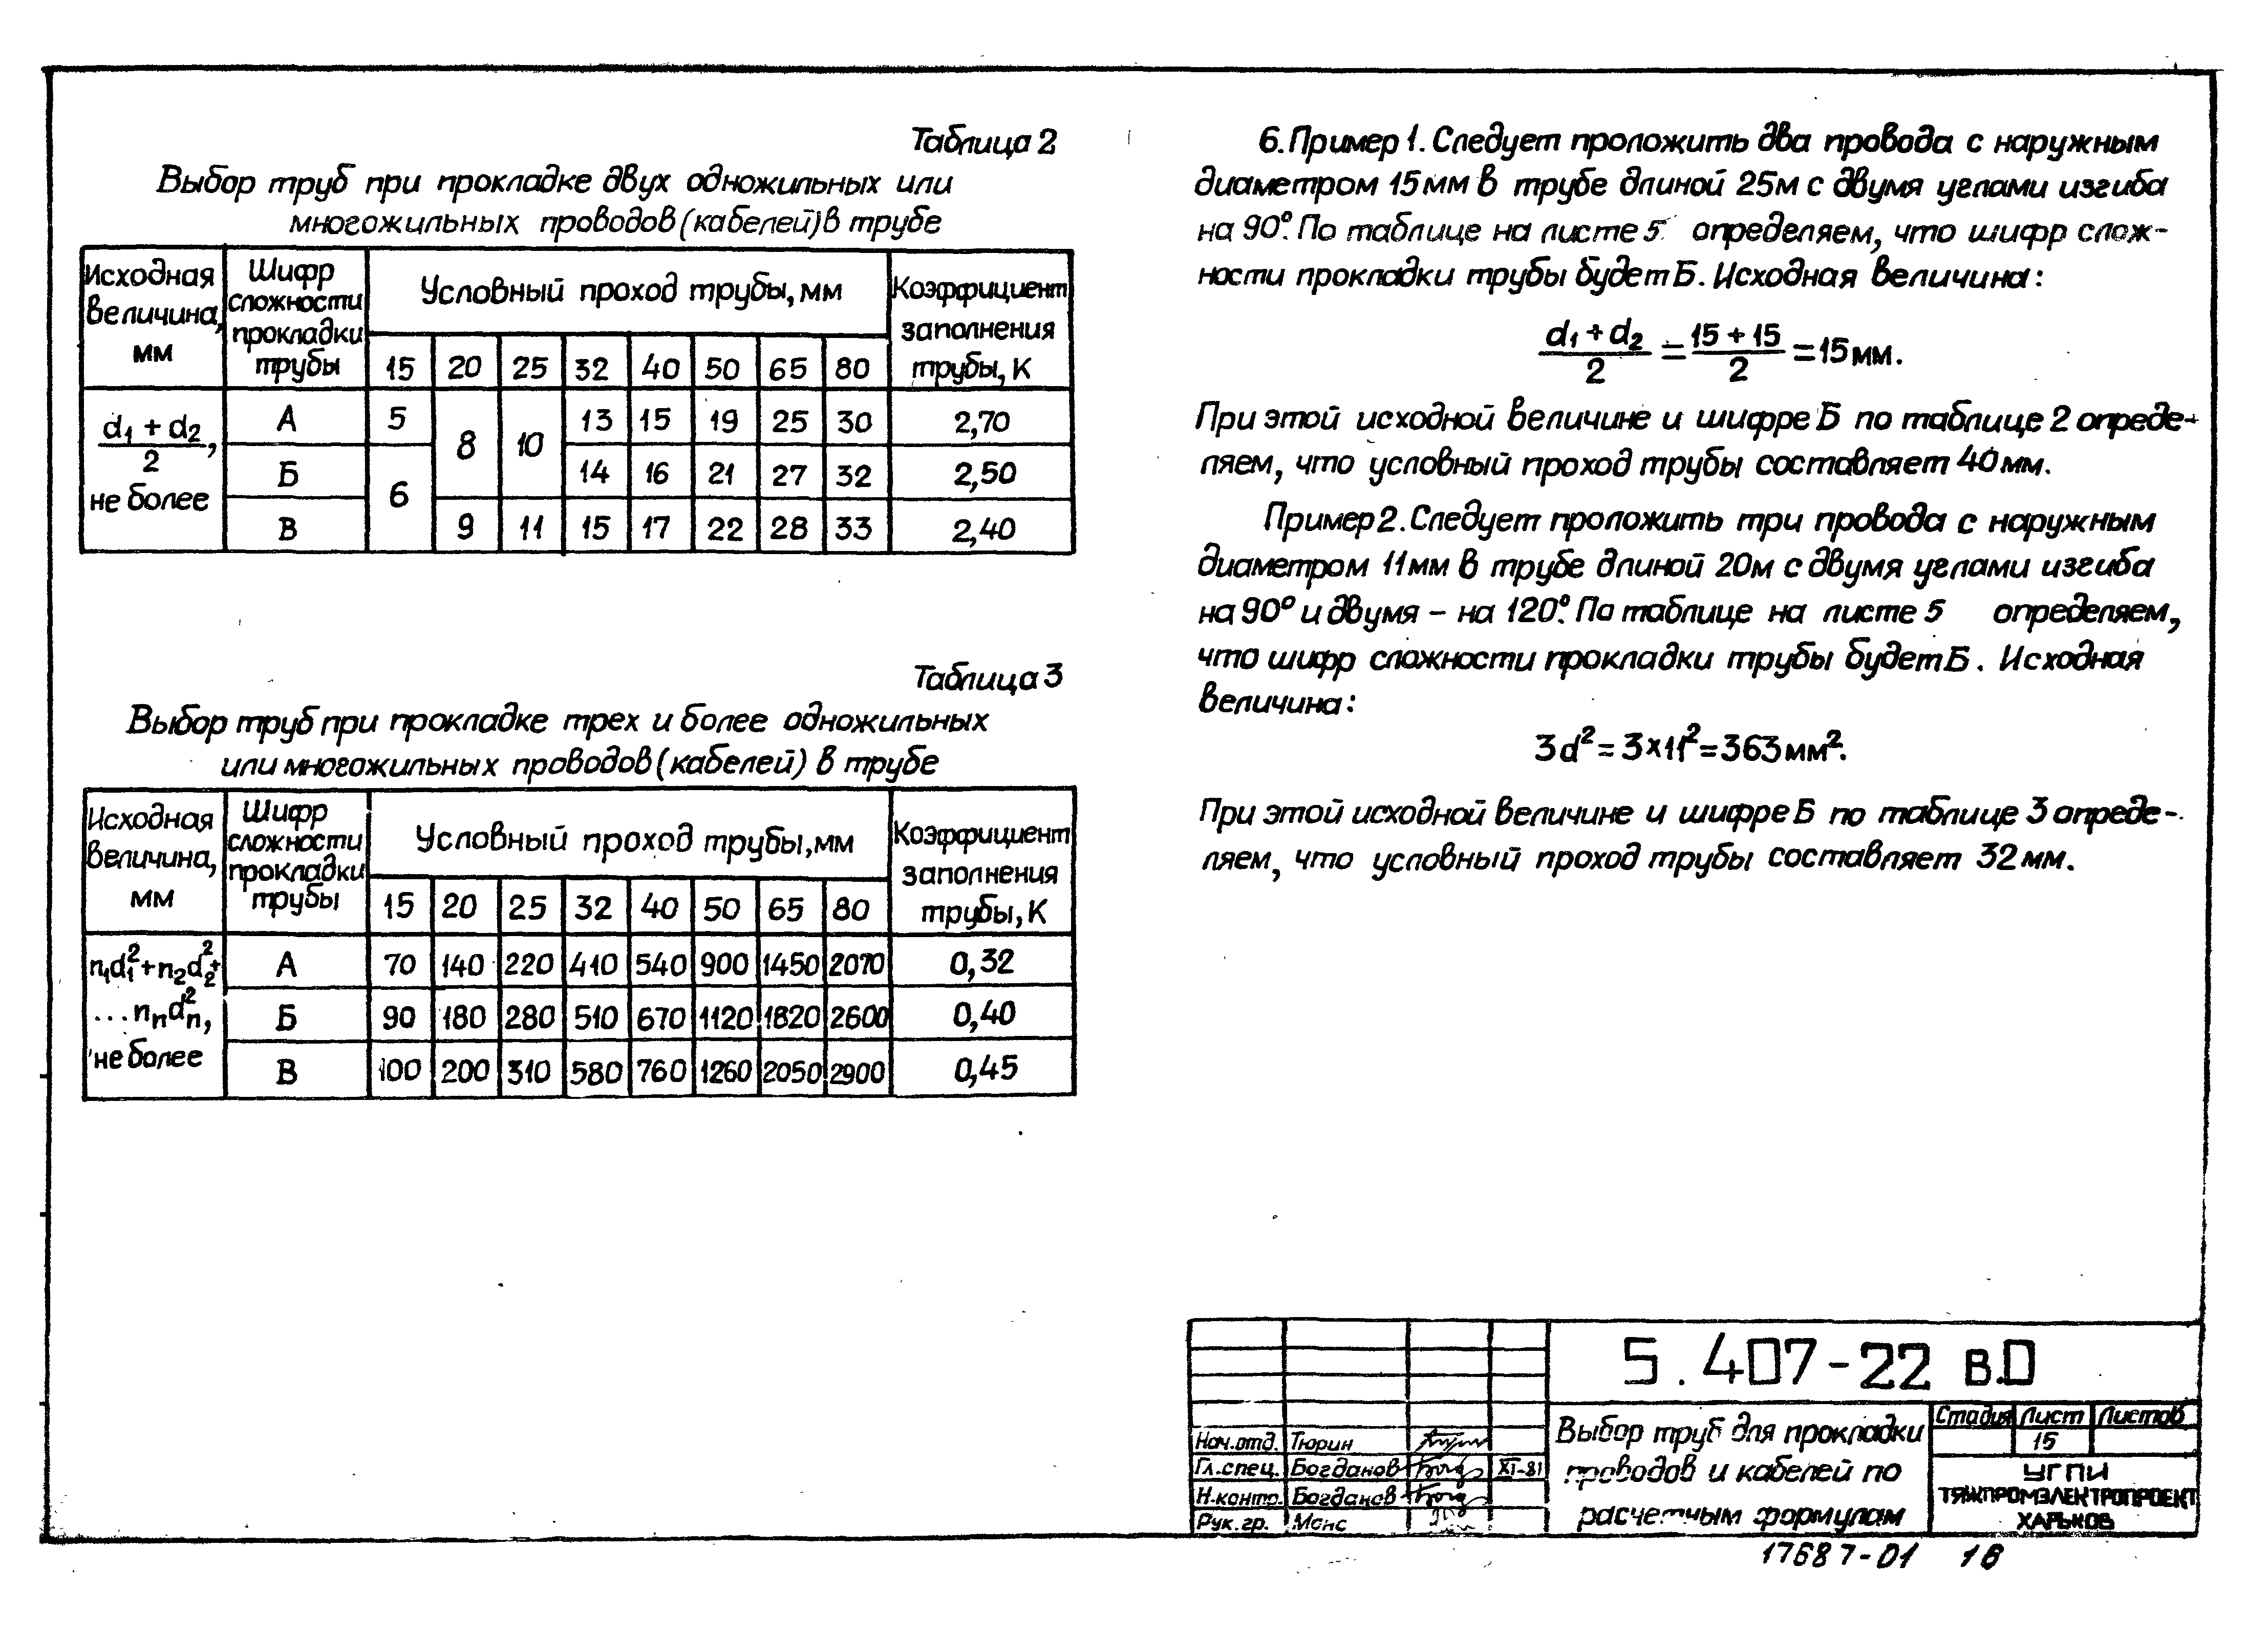 Таблица 2
Выбор труб при прокладке двух одножильных или
многожильных проводов (кабелей) в трубе
Исходная величина, мм | Шифр сложности прокладки трубы | Условный проход трубы, мм | Коэффициент заполнения трубы, К
15 20 25 32 40 50 65 80
d₁ + d₂ / 2, не более
А 5 8 10 13 15 19 25 30 2,70
Б 6 14 16 21 27 32 2,50
В 9 11 15 17 22 28 33 2,40
Таблица 3
Выбор труб при прокладке трех и более одножильных
или многожильных проводов (кабелей) в трубе
Исходная величина, мм | Шифр сложности прокладки трубы | Условный проход трубы, мм | Коэффициент заполнения трубы, К
15 20 25 32 40 50 65 80
n₁d₁² + n₂d₂² + ... nₙdₙ², не более
А 70 140 220 410 540 900 1450 2070 0,32
Б 90 180 280 510 670 1120 1820 2600 0,40
В 100 200 310 580 760 1260 2050 2900 0,45
6. Пример 1. Следует проложить два провода с наружным
диаметром 15 мм в трубе длиной 25м с двумя углами изгиба
на 90°. По таблице на листе 5 определяем, что шифр слож-
ности прокладки трубы будет Б. Исходная величина:
d₁ + d₂ / 2 = 15 + 15 / 2 = 15 мм.
При этой исходной величине и шифре Б по таблице 2 опреде-
ляем, что условный проход трубы составляет 40 мм.
Пример 2. Следует проложить три провода с наружным
диаметром 11 мм в трубе длиной 20м с двумя углами изгиба
на 90° и двумя – на 120°. По таблице на листе 5 определяем,
что шифр сложности прокладки трубы будет Б. Исходная
величина:
3d² = 3×11² = 363 мм².
При этой исходной величине и шифре Б по таблице 3 опреде-
ляем, что условный проход трубы составляет 32 мм.
5.407-22 В.0
Выбор труб для прокладки
проводов и кабелей по
расчетным формулам
Стадия Лист Листов
15
УГПИ
ТЯЖПРОМЭЛЕКТРОПРОЕКТ
ХАРЬКОВ
Нач.отд. Тюрин
Гл.спец. Богданов XI-81
Н.контр. Богданов
Рук.гр. Монс
17687-01 16